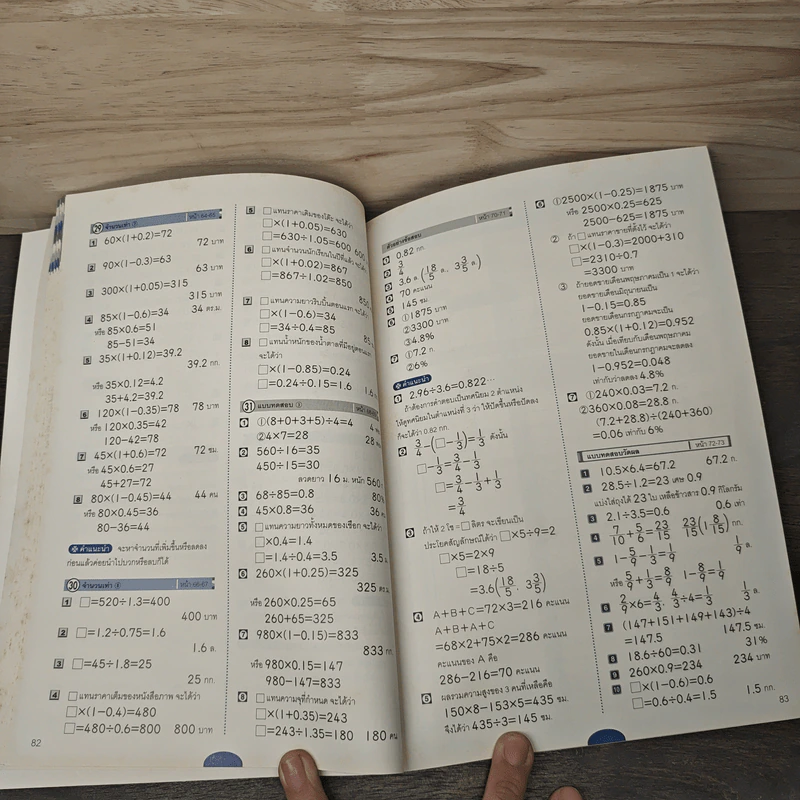 29 จำนวนเท่า ③ หน้า 64-65
1 60×(1+0.2)=72
72 บาท
2 90×(1-0.3)=63
63 บาท
3 300×(1+0.05)=315
315 บาท
4 85×(1-0.6)=34 34 ตร.ม.
หรือ 85×0.6=51
85-51=34
5 35×(1+0.12)=39.2
39.2 กก.
หรือ 35×0.12=4.2
35+4.2=39.2
6 120×(1-0.35)=78 78 บาท
หรือ 120×0.35=42
120-42=78
7 45×(1+0.6)=72 72 ซม.
หรือ 45×0.6=27
45+27=72
8 80×(1-0.45)=44 44 คน
หรือ 80×0.45=36
80-36=44
คำแนะนำ จะหาจำนวนที่เพิ่มขึ้นหรือลดลง
ก่อนแล้วค่อยนำไปบวกหรือลบก็ได้
30 จำนวนเท่า ④ หน้า 66-67
1 □=520÷1.3=400
400 บาท
2 □=1.2÷0.75=1.6
1.6 ล.
3 □=45÷1.8=25
25 กก.
4 □ แทนราคาเต็มของหนังสือภาพ จะได้ว่า
□×(1-0.4)=480
□=480÷0.6=800 800 บาท
82
5 □ แทนราคาเดิมของโต๊ะ จะได้ว่า
□×(1+0.05)=630
□=630÷1.05=600 600
6 □ แทนจำนวนนักเรียนในปีที่แล้ว
□×(1+0.02)=867
□=867÷1.02=850
850
7 □ แทนความยาวริบบิ้นตอนแรก จะได้
□×(1-0.6)=34
□=34÷0.4=85
8 □ แทนน้ำหนักของน้ำตาลที่มีอยู่ตอนแรก
จะได้ว่า
□×(1-0.85)=0.24
□=0.24÷0.15=1.6 1.6
31 แบบทดสอบ ③
1 ①(8+0+3+5)÷4=4 4
②4×7=28 28
2 560÷16=35
450÷15=30
ลวดยาว 16 ม. หนัก 560
3 68÷85=0.8 80%
4 45×0.8=36 36
5 □ แทนความยาวทั้งหมดของเชือก จะได้ว่า
□×0.4=1.4
□=1.4÷0.4=3.5 3.5
6 260×(1+0.25)=325
325 ตร.ม.
หรือ 260×0.25=65
260+65=325
7 980×(1-0.15)=833
833 กก.
หรือ 980×0.15=147
980-147=833
8 □ แทนความจุที่กำหนด จะได้ว่า
□×(1+0.35)=243
□=243÷1.35=180 180 คน
ตัวอย่างข้อสอบ หน้า 70-71
1 0.82 กก.
2 3/4
3 3.6 ล. (18/5 ล., 3 3/5 ล.)
4 70 คะแนน
5 145 ซม.
6 ①1875 บาท
②3300 บาท
③4.8%
7 ①7.2 ก.
②6%
คำแนะนำ
1 2.96÷3.6=0.822…
ถ้าต้องการคำตอบเป็นทศนิยม 2 ตำแหน่ง
ให้ดูทศนิยมในตำแหน่งที่ 3 ว่า ให้ปัดขึ้นหรือปัดลง
ก็จะได้ว่า 0.82 กก.
2 3/4-(□-1/3)=1/3 ดังนั้น
□-1/3=3/4-1/3
□=3/4-1/3+1/3
=3/4
3 ถ้าให้ 2 โซ = □ ลิตร จะเขียนเป็น
ประโยคสัญลักษณ์ได้ว่า □×5÷9=2
□×5=2×9
□=18÷5
=3.6(18/5, 3 3/5)
4 A+B+C=72×3=216 คะแนน
A+B+A+C
=68×2+75×2=286 คะแนน
คะแนนของ A คือ
286-216=70 คะแนน
5 ผลรวมความสูงของ 3 คนที่เหลือคือ
150×8-153×5=435 ซม.
จึงได้ว่า 435÷3=145 ซม.
6 ①2500×(1-0.25)=1875 บาท
หรือ 2500×0.25=625
2500-625=1875 บาท
② ถ้า □ แทนราคาขายที่ตั้งไว้ จะได้ว่า
□×(1-0.3)=2000+310
□=2310÷0.7
=3300 บาท
③ ถ้ายอดขายเดือนพฤษภาคมเป็น 1 จะได้ว่า
ยอดขายเดือนมิถุนายนเป็น
1-0.15=0.85
ยอดขายเดือนกรกฎาคมจะเป็น
0.85×(1+0.12)=0.952
ดังนั้น เมื่อเทียบกับเดือนพฤษภาคม
ยอดขายในเดือนกรกฎาคมจะลดลง
1-0.952=0.048
เท่ากับว่าลดลง 4.8%
7 ①240×0.03=7.2 ก.
②360×0.08=28.8 ก.
(7.2+28.8)÷(240+360)
=0.06 เท่ากับ 6%
แบบทดสอบวัดผล หน้า 72-73
1 10.5×6.4=67.2 67.2 ก.
2 28.5÷1.2=23 เศษ 0.9
แบ่งใส่ถุงได้ 23 ใบ เหลือข้าวสาร 0.9 กิโลกรัม
3 2.1÷3.5=0.6 0.6 เท่า
4 7/10+5/6=23/15 23/15(1 8/15) กก.
5 1-5/9-1/3=1/9 1/9 ล.
หรือ 5/9+1/3=8/9 1-8/9=1/9
6 2/9×6=4/3, 4/3÷4=1/3 1/3 ล.
7 (147+151+149+143)÷4
=147.5 147.5 ซม.
8 18.6÷60=0.31 31%
9 260×0.9=234 234 บาท
10 □×(1-0.6)=0.6
□=0.6÷0.4=1.5 1.5 กก.
83